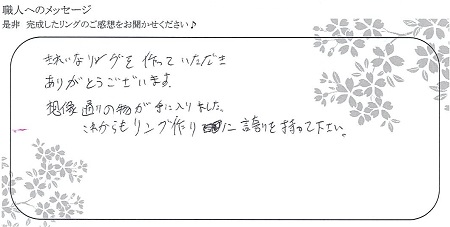 職人へのメッセージ
是非 完成したリングのご感想をお聞かせください♪
きれいなリングを作っていただき
ありがとうございます。
想像通りの物が手に入りました。
これからもリング作りに誇りを持って下さい。